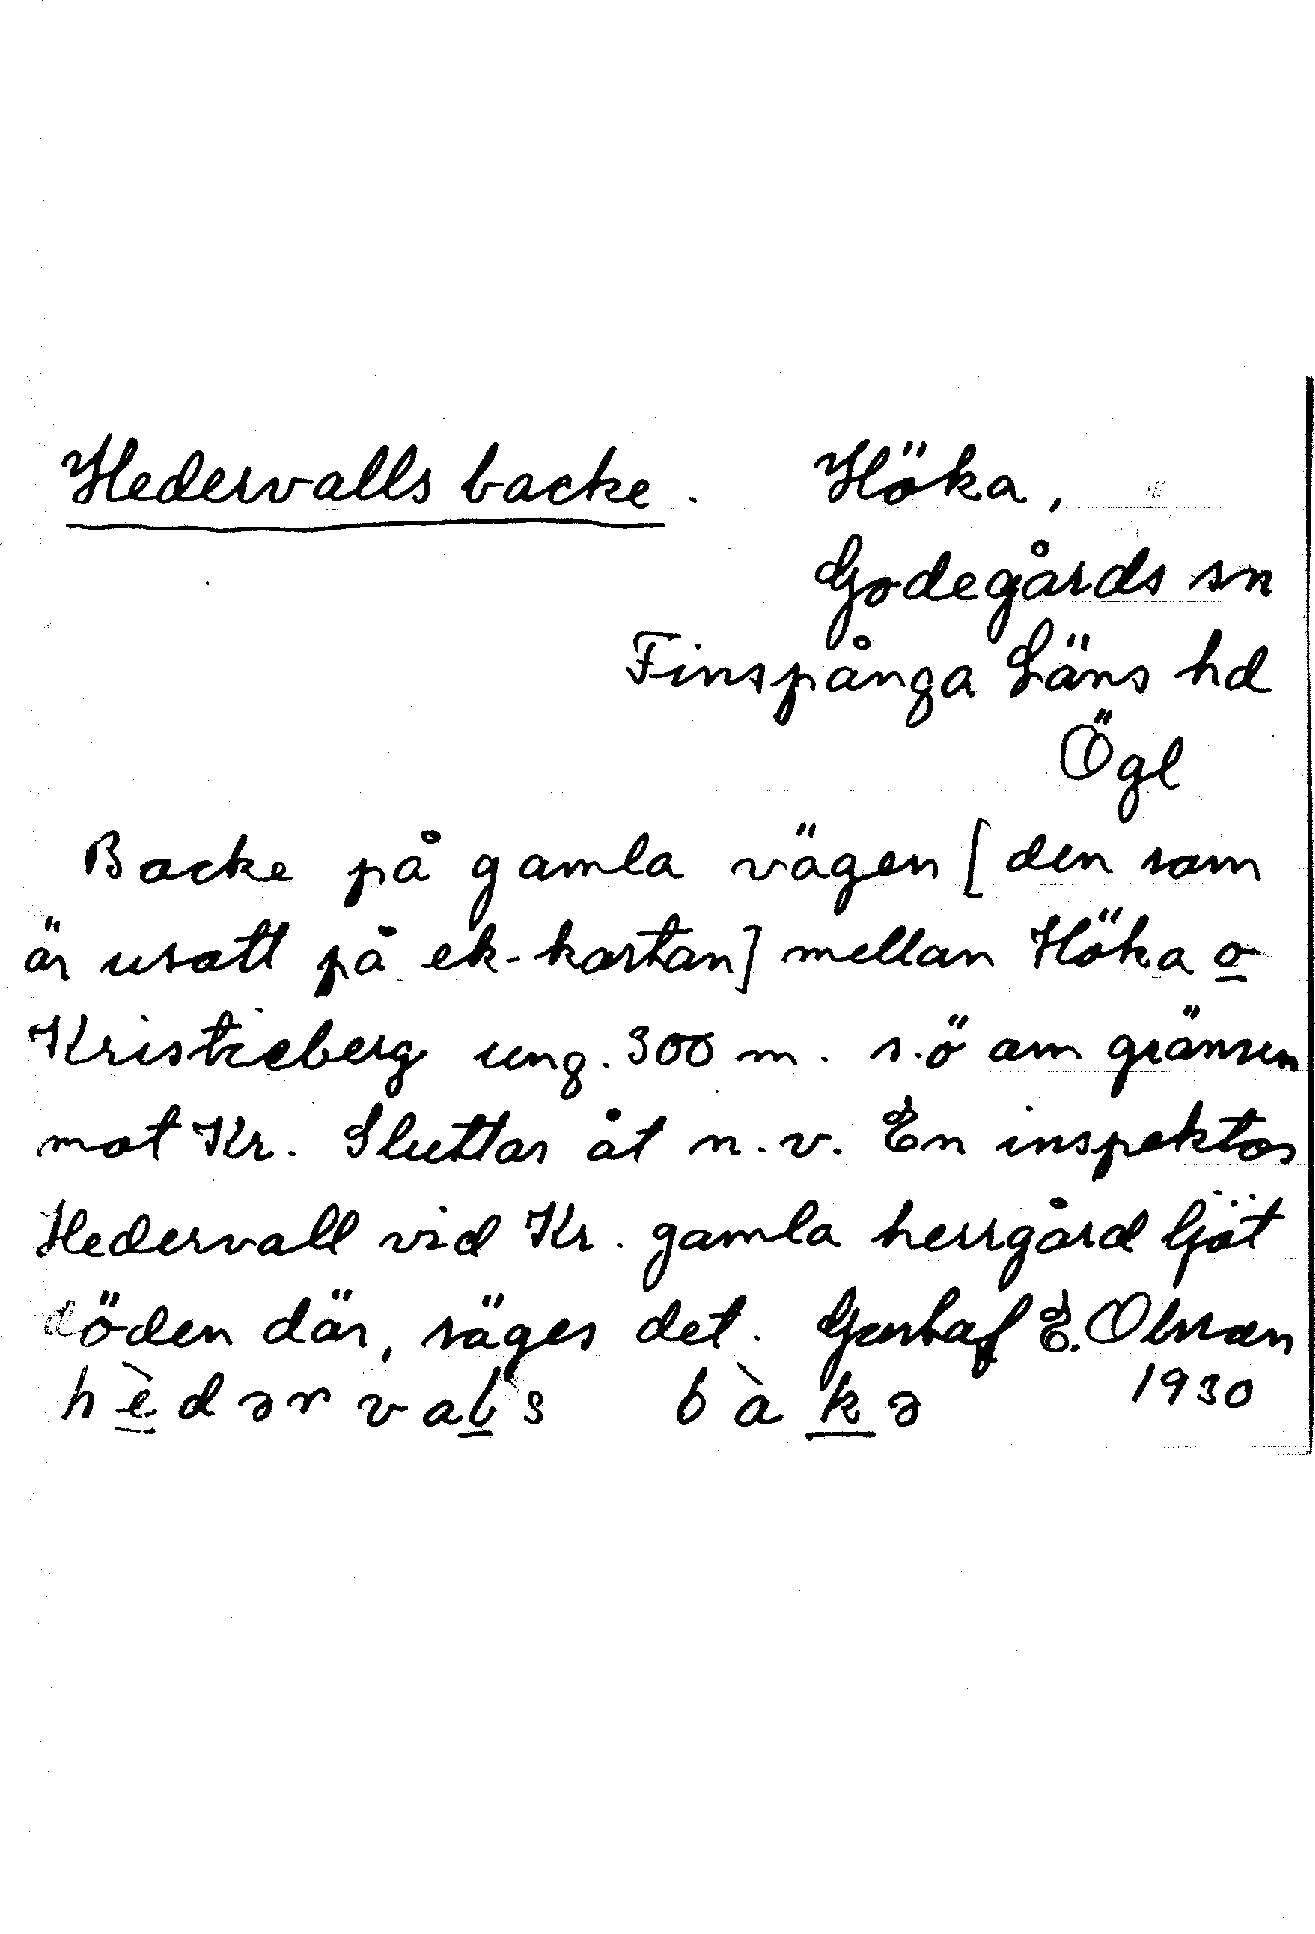 Hedervalls backe. Höka,
Godegårds sn
Finspånga Läns hd
Ögl
Backe på gamla vägen [den som
är utsatt på ek-kartan] mellan Höka o
Kristieberg ung. 300 m. s.ö om gränsen
mot Kr. Sluttar åt n.v. En inspektor
Hedervall vid Kr. gamla herrgård ljöt
döden där, säges det. Gustaf E. Olsson
hèdərvals bàkə 1930